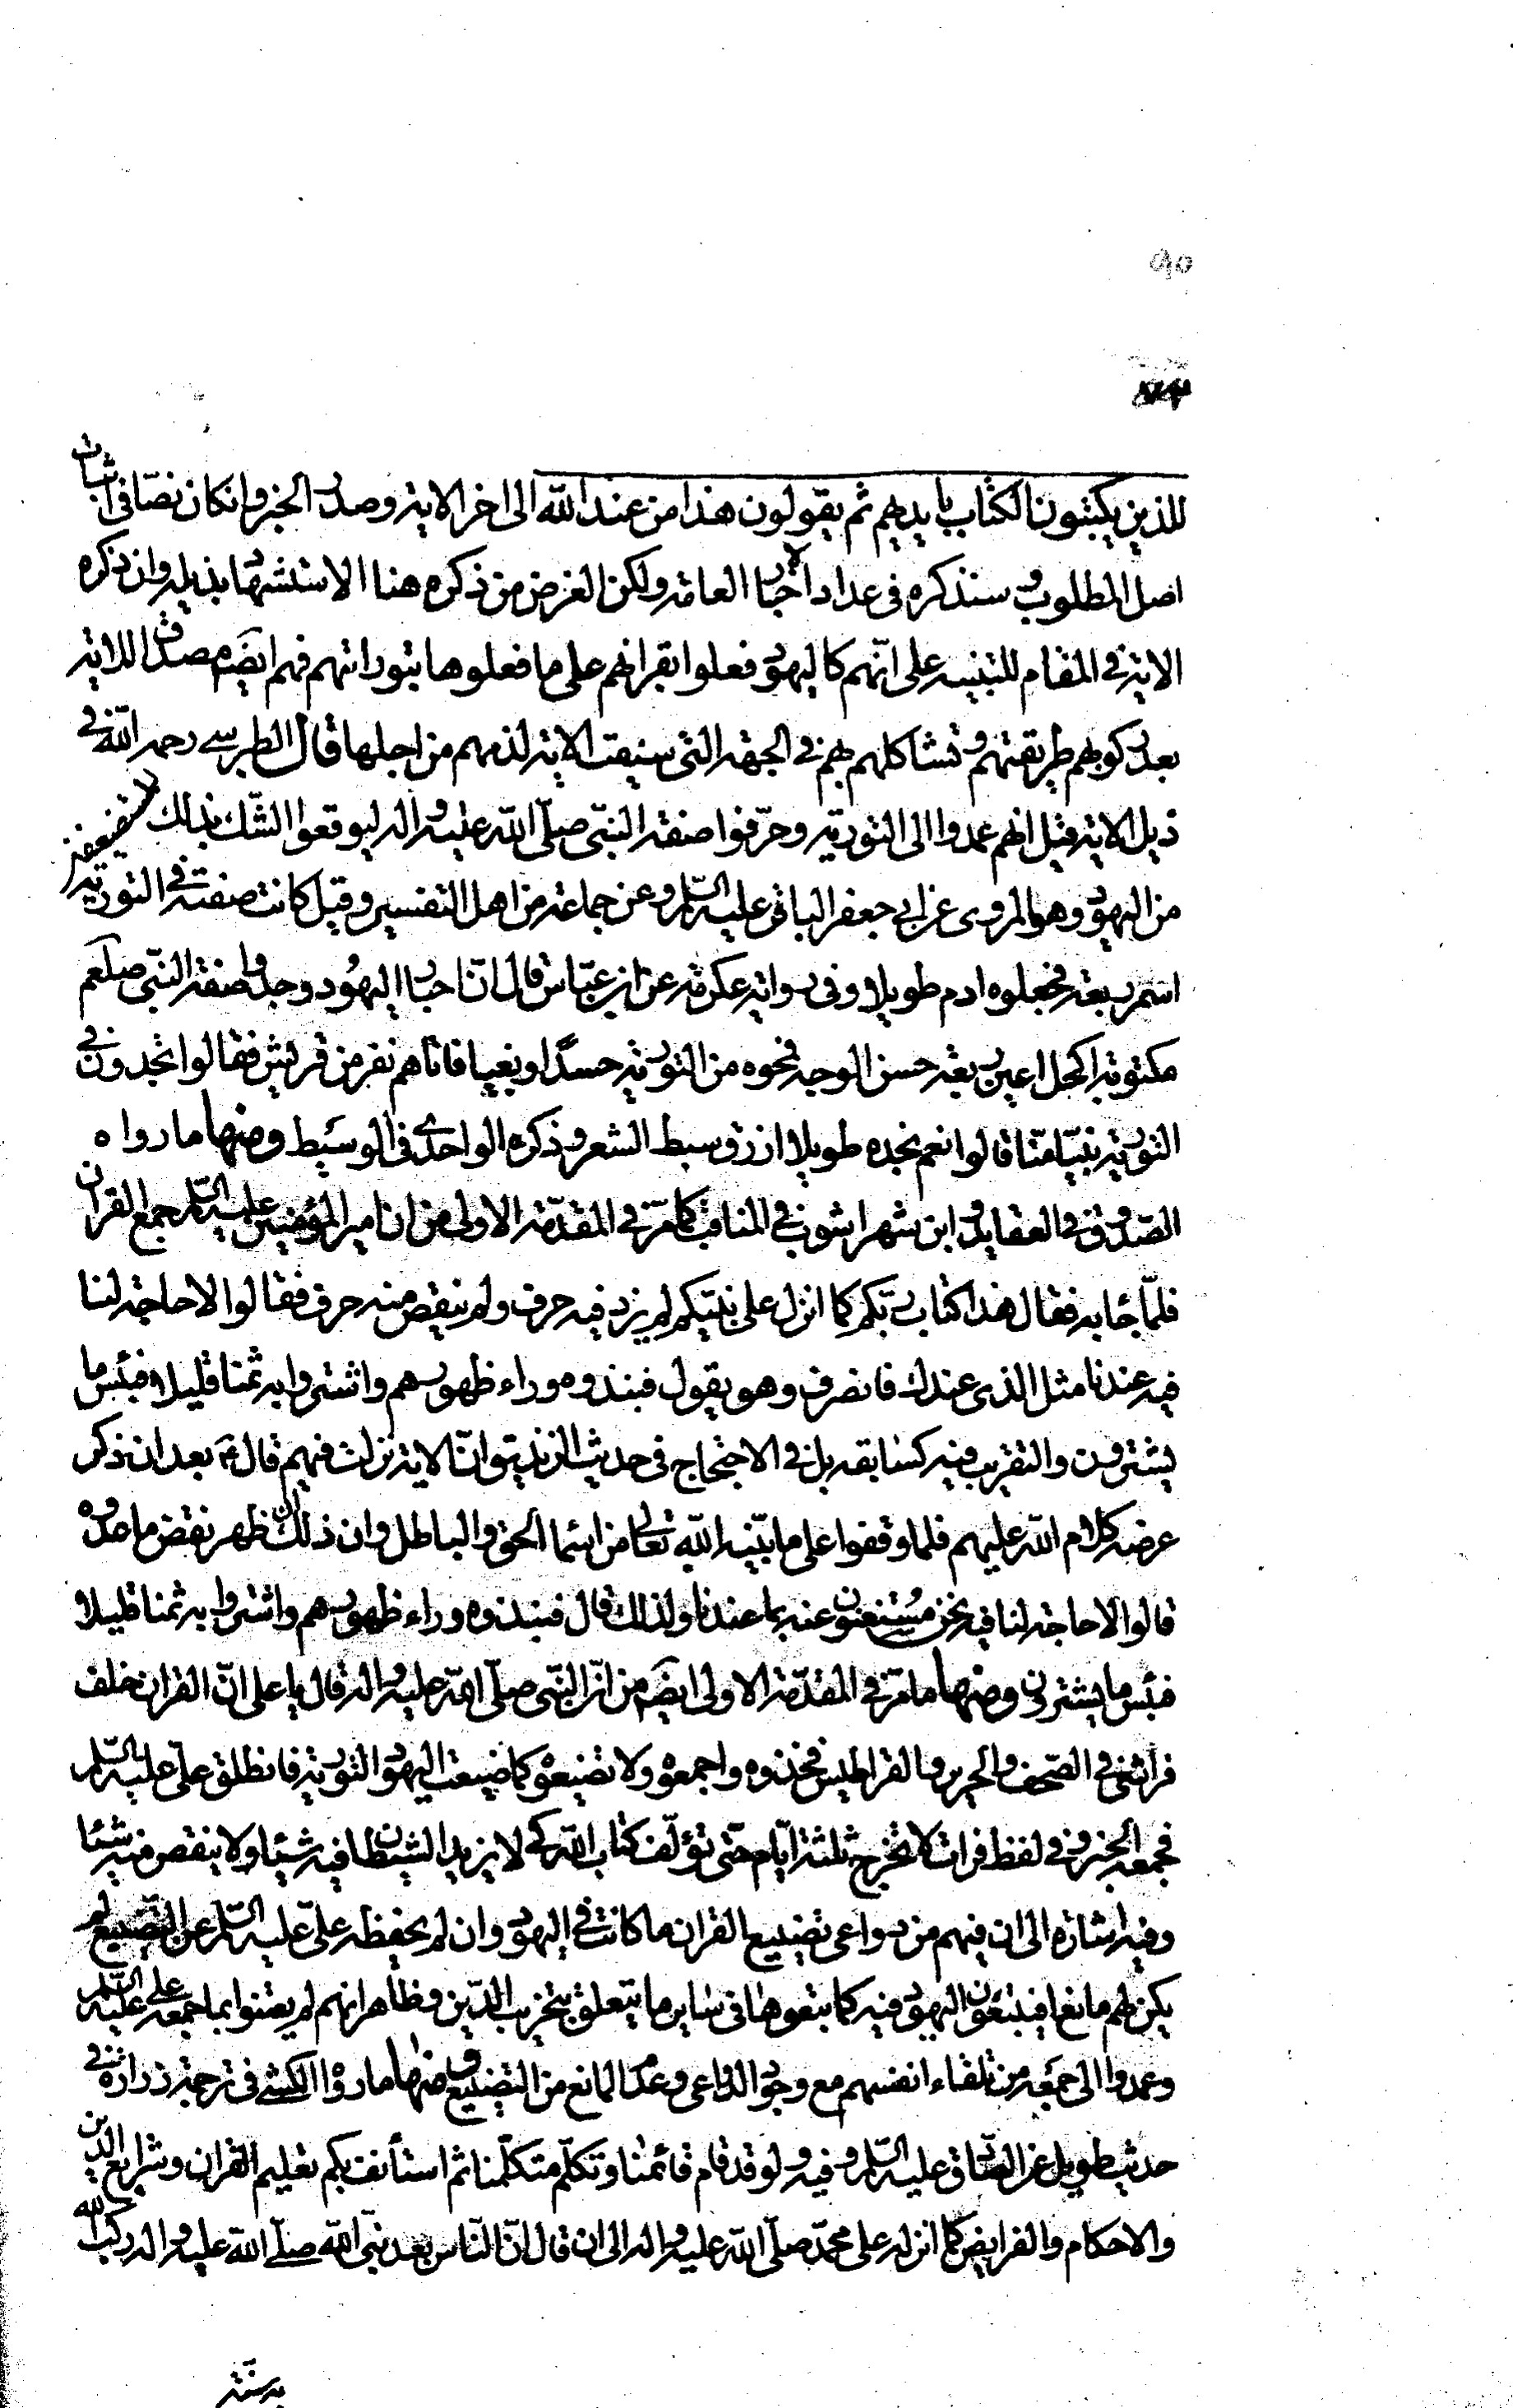 ٩٥
للذين يكتبون الكتاب بايديهم ثم يقولون هذا من عند الله الى اخر الاية وصدر الخبر وانكان نصا فى اثبات
اصل المطلوب وسنذكره فى عداد اخبار العامة ولكن الغرض من ذكره هنا الاستشهاد بذيله وان ذكره
الاية فى المقام للتنبيه على انّهم كاليهود فعلوا بقرانهم على ما فعلوها بتوراتهم فهم ايضَه مصداق للاية
بعد ركوبهم طريقتهم وتشاكلهم بهم فى الجهة التى سيقت الاية لذمهم من اجلها قال الطبرسى رحمه الله فى
ذيل الاية قيل انهم عمدوا الى التورية وحرّفوا صفة النبّى صلّى الله عليه واله ليوقعوا الشّك بذلك للمستضعفين
من اليهود وهو المروى عن ابى جعفر الباقر عليه السّلم وعن جماعة من اهل التفسير وقيل كانت صفته فى التورية
اسمر ربعة فجعلوه ادم طويلا وفى رواية عكرمة عن ابن عبّاس قال انّ احبار اليهُود وجدوا صفة النبّى صلعم
مكتوبة اكحل اعين ربعة حسن الوجه فمحوه من التورية حسدًا وبغيا فاتاهم نفر من قريش فقالوا اتجدون فى
التورية نبيّا منّا قالوا نعم نجده طويلا ازرق سبط الشعر وذكره الواحدى فى الوسيط ومنها ما رواه
الصّدوق فى العقايد وابن شهراشوب فى المناقب كما مرّ فى المقدّمة الاولى من ان امير المؤمنين عليه السّلم جمع القران
فلمّا جاء به فقال هذا كتاب ربّكم كما انزل على نبيّكم لم يزد فيه حرف ولم ينقص منه حرف فقالوا لا حاجة لنا
فيه عندنا مثل الذى عندك فانصرف وهو يقول فنبذوه وراء ظهورهم واشتروا به ثمنا قليلا فبئس ما
يشترون والتقريب فيه كسابقه بل فى الاحتجاج فى حديث الزنديق انّ الاية نزلت فيهم قال ع بعد ان ذكر
عرضه كلام الله عليهم فلما وقفوا على ما بيّنه الله تعالى من اسماء الحق والباطل وان ذلك ان ظهر نقض ما عقدوه
قالوا لا حاجة لنا فيه نحن مُستغنون عنه بما عندنا ولذلك قال فنبذوه وراء ظهورهم واشتروا به ثمنا قليلا
فبئس ما يشترون ومنها ما مرّ فى المقدّمة الاولى ايضَه من انّ النبّى صلّى الله عليه واله قال يا على انّ القران خلف
فراشى فى الصّحف والحرير والقراطيس فخذوه واجمعوه ولا تضيعوه كما ضيعت اليهود التورية فانطلق علىّ عليه السّلم
فجمعه الخبر وفى لفظ فرات لا تخرج ثلثة ايّام حتّى تؤلّف كتاب الله كى لا يزيد الشيطان فيه شيئا ولا ينقص منه شيئا
وفيه اشارة الى ان فيهم من دواعى تضييع القران ما كانت فى اليهود وان لم يحفظه علىّ عليه السّلم عن التضييع لم
يكن لهم مانعا فيتبعون اليهود فيه كما يتبعوها فى ساير ما يتعلق بتخريب الدّين وظاهر انهم لم يعتنوا بما جمعه على عليه السّلم
وعمدوا الى جمعَه من تلقاء انفسهم مع وجود الدواعى وعدم المانع من التضييع ومنها ما رواه الكشى فى ترجمة زرارة فى
حديث طويل عن الصّادق عليه السّلم وفيه ولو قد قام قائمنا وتكلّم متكلّمنا ثم استأنف بكم تعليم القران وشرايع الدين
والاحكام والفرايض كما انزله على محمّد صلّى الله عليه واله الى ان قال انّ النّاس بعد نبّى الله صلّى الله عليه واله ركب الله
به سنّة